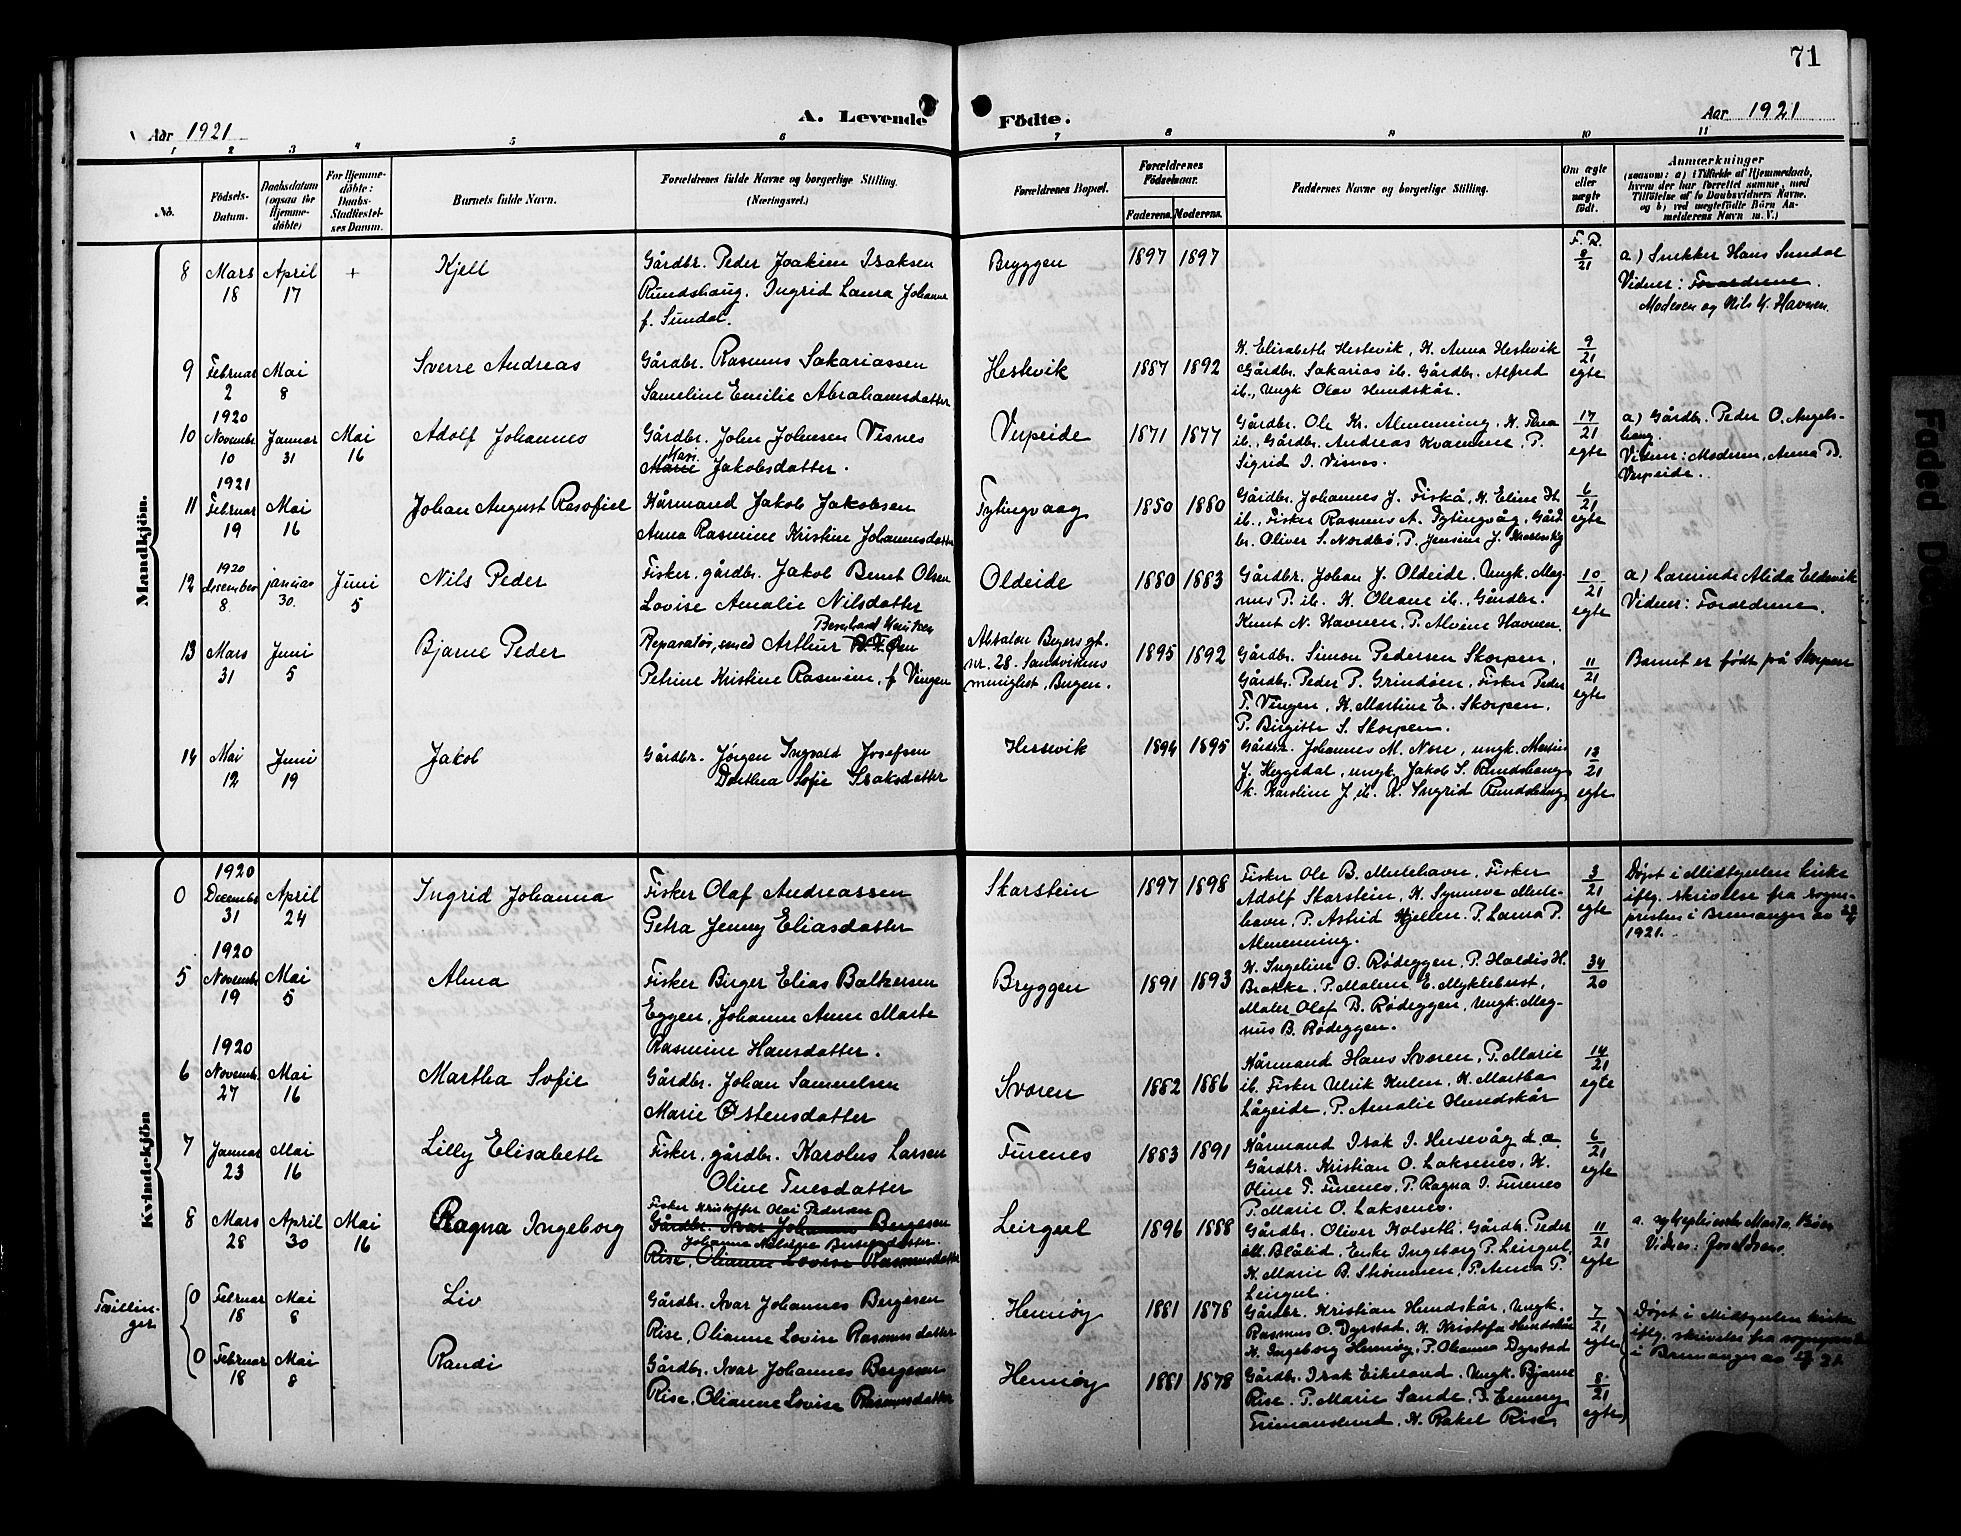 71
Aar 1921
A. Levende
Fødte.
Aar 1921
1 2 3 4 5 6 7 8 9 10 11
No.
Fødsels-
Datum.
Daabsdatum
(ogsaa for
Hjemme-
døbte)
For Hjemme-
døbte:
Daabs-
Stadfæstel-
ses Datum.
Barnets fulde Navn.
Forældrenes fulde Navne og borgerlige Stilling.
(Næringsvei.)
Forældrenes Bopæl.
Forældrenes
Fødselsaar.
Faderens. Moderens.
Faddernes Navne og borgerlige Stilling.
Om ægte
eller
uægte
født.
Anmærkninger
(saasom: a) i Tilfælde af Hjemmedaab,
hvem der har forrettet samme, med
Tilføielse af to Daabsvidners Navne,
og b) ved uegtefødte Børn An-
melderens Navn m. V.)
Mandkjön.
8 Mars 18 April 17 + Kjell
Gårdbr. Peder Joakim Isaksen
Rundshaug. Ingrid Laura Johanne
f. Sundal.
Bryggen 1897 1897
F. R.
8/21
a) Snekker Hans Sundal
Vidner: Foraeldrene.
Moderen og Nils K. Havnen.
9 Februar 2 Mai 8 Sverre Andreas
Gårdbr. Rasmus Sakariassen
Sameline Emilie Abrahamsdatter
Hestvik 1887 1892
K. Elisabeth Hestevik, K. Anna Hestevik
Gårdbr. Sakarias ib. Gårdbr. Alfred
ib., Ungk Olav Hundskår.
9/21 egte
10 1920 Novembr. 10 Januar 31 Mai 16 Adolf Johannes
Gårdbr. John Johnsen Visnes
Mari
Marie Jakobsdatter.
Verpeide 1871 1877
Gårdbr. Ole Kr. Almenning, K. Thea
ib., Gårdbr. Andreas Kvamme, P.
Sigrid I. Visnes.
17/21 egte
a) Gårdbr. Peder O. Angels-
haug.
Vidner: Moderen, Anna P.
Verpeide.
11 1921 Februar 19 Mai 16 Johan August Rasofiel
Kårmand Jakob Jakobsen
Anna Rasmine Kristine Johannesdatter
Fytingvaag 1850 1880
Gårdbr. Johannes J. Fiskå, K. Eline
ib., Fisker Rasmus A. Fytingvåg, Gård
br. Oliver S. Nordbø, P. Jensine J.
6/21 egte
12 1920 December 8. januar 30. Juni 5 Nils Peder
Fisker, gårdbr. Jakob Bernt Olsen
Lovise Amalie Nilsdatter
Oldeide 1880 1883
Gårdbr. Johan J. Oldeide, Ungk. Mag-
nus P. ib. K. Oleane ib., Gårdbr.
Knut N. Havnen, P. Alvine Havnen.
10/21 egte
a) Laurinde Alida Eldevik
Vidner: Foraeldrene.
13 Mars 31 Juni 5 Bjarne Peder
Bernhard
Reparatør, smed Arthur
Petrine Kristine Rasmine, f Vingen
Absalon Beyers gt.
nr. 28. Sandvikens
menighet, Bergen.
1895 1892
Gårdbr. Simon Pedersen Skorpen,
Gårdbr. Peder P. Grindøen, Fisker Peder
T. Vingen, K. Martine E. Skorpen,
P. Birgitte S. Skorpen.
11/21 egte
Barnet er født på Skorpen
14 Mai 12 Juni 19 Jakob
Gårdbr. Jörgen Ingvald Josefsen
Dorthea Sofie Isaksdatter
Hessvik 1894 1895
Gårdbr. Johannes M. Nore, ungk.
J. Heggedal, ungk. Jakob S. Rundshaug
k. Karoline J. ib. K. Ingrid Rundshaug
13/21 egte
Kvindekjön
0 1920 December 31 April 24 Ingrid Johanna
Fisker Olaf Andreassen
Petra Jenny Eliasdatter
Skarstein 1897 1898
Fisker Ole B. Mulehavn, Fisker
Adolf Skarstein, K. Synneve Mule-
havn, P. Astrid Kjellen, P. Laura P.
Almenning.
3/21 egte
Døpt i Midtgulen kirke
iflg. skrivelse fra sogne-
presten i Bremanger av
1921.
5 1920 Novembr. 19 Mai 5 Alma
Fisker Birger Elias Balkersen
Eggen, Johanne Anne Marte
Rasmine Hansdatter.
Bryggen 1891 1893
K. Ingeline O. Rødeggen, P. Haldis H.
Brakke, P. Malene E. Myklebust,
Maler Olaf B. Rødeggen, Ungk. Mag-
nus B. Rødeggen.
34/20
6 1920 Novemb. 27 Mai 16 Martha Sofie
Gårdbr. Johan Samuelsen
Marie Østensdatter
Svoren 1882 1886
Kårmand Hans Svoren, P. Marie
ib. Fisker Ulrik Hulen, K. Martha
Lågeide, P. Amalie Hundskår
14/21 egte
7 Januar 23 Mai 16 Lilly Elisabeth
Fisker, gårdbr. Karolus Larsen
Oline Tuesdatter
Furenes 1883 1891
Kårmand Isak I. Husevåg d. æ
Gårdbr. Kristian O. Laksenes, K.
Oline T. Furenes, P. Ragna I. Furenes
P. Marie O. Laksenes.
6/21 egte
8 Mars 28 April 30 Mai 16 Ragna Ingeborg
Fisker Kristoffer Olai Pedersen
Gårdbr. Ivar Johannes Bergesen
Rise, Olianne Lovise Rasmusdatter
Leirgul 1896 1888
Gårdbr. Oliver Kolseth, Gårdb. Peder
Blålid, Enke Ingeborg P. Leirgul,
K. Marie B. Strømmen, P. Anna P.
Leirgul.
11/21 egte
a. sykepleierske Marta Bøen
Vidner: Foreldrene.
Tvillin-
ger
0 Februar 18 Mai 8 Liv
Gårdbr. Ivar Johannes Bergesen
Rise, Olianne Lovise Rasmusdatter
Hennøy 1881 1878
Gårdbr. Kristian Hundskår, Ungk.
Rasmus O. Dyrstad, K. Kristofa Hundskår
K. Ingeborg Hennøy, P. Oleanna Dyrstad
7/21 egte
Døpt i Midtgulen kirke
iflg. skrivelse fra sognepresten
i Bremanger av
0 Februar 18 Mai 8 Randi
Gårdbr. Ivar Johannes Bergesen
Rise, Olianne Lovise Rasmusdatter
Hennøy 1881 1878
Gårdbr. Isak Eikeland, Ungk. Bjarne
Rise, P. Marie Sande, P. Emmy
Frimanslund, K. Rakel Rise
8/21 egte
Faded Doc